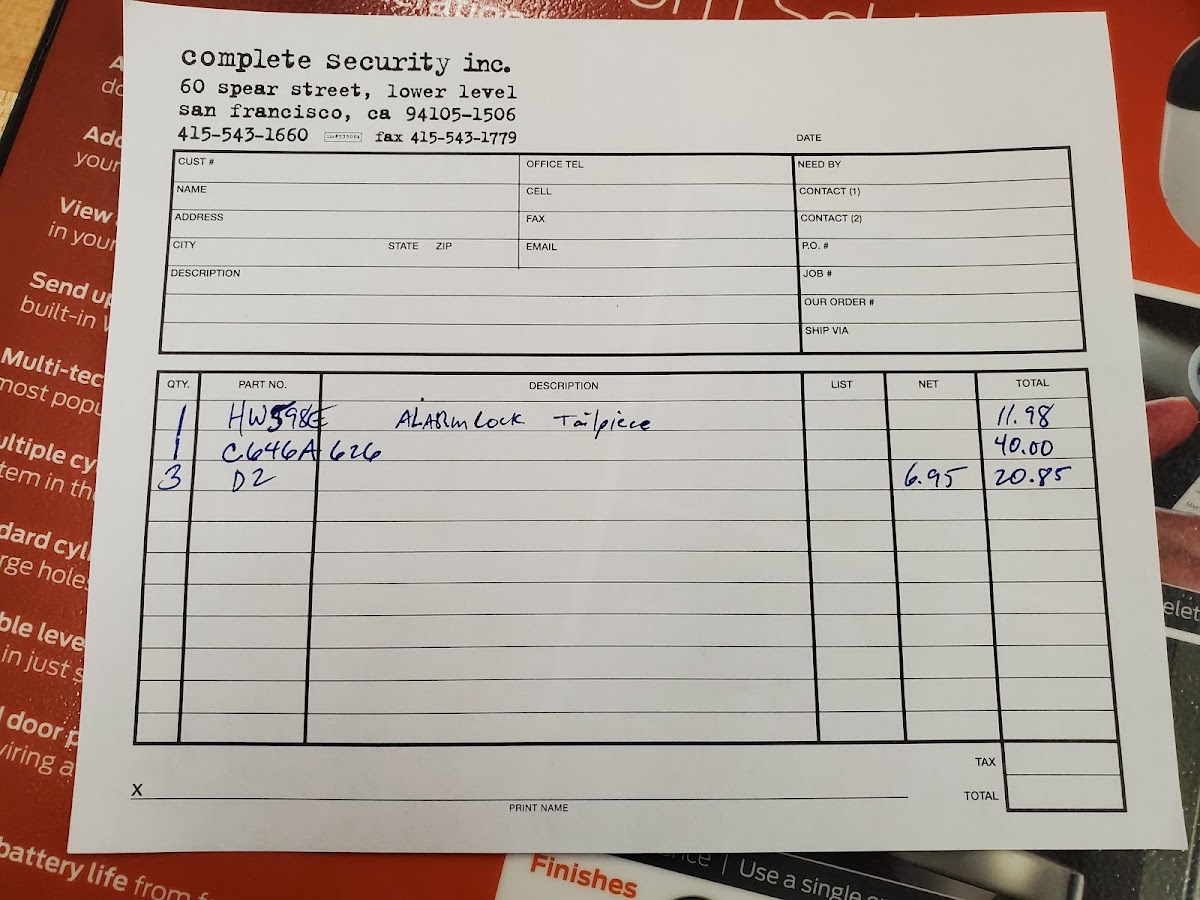 complete security inc.
60 spear street, lower level
san francisco, ca 94105-1506
415-543-1660 fax 415-543-1779
DATE
CUST # OFFICE TEL NEED BY
NAME CELL CONTACT (1)
ADDRESS FAX CONTACT (2)
CITY STATE ZIP EMAIL P.O. #
DESCRIPTION JOB #
OUR ORDER #
SHIP VIA
QTY. PART NO. DESCRIPTION LIST NET TOTAL
1 HW598E ALARM LOCK Tailpiece 11.98
1 C646A 626 40.00
3 D2 6.95 20.85
TAX
X TOTAL
PRINT NAME
View
in your
Send up
built-in
Multi-tec
most popu
ultiple cy
tem in th
dard cyl
rge holes
ble leve
in just s
door p
viring a
battery life from
Finishes
Use a single